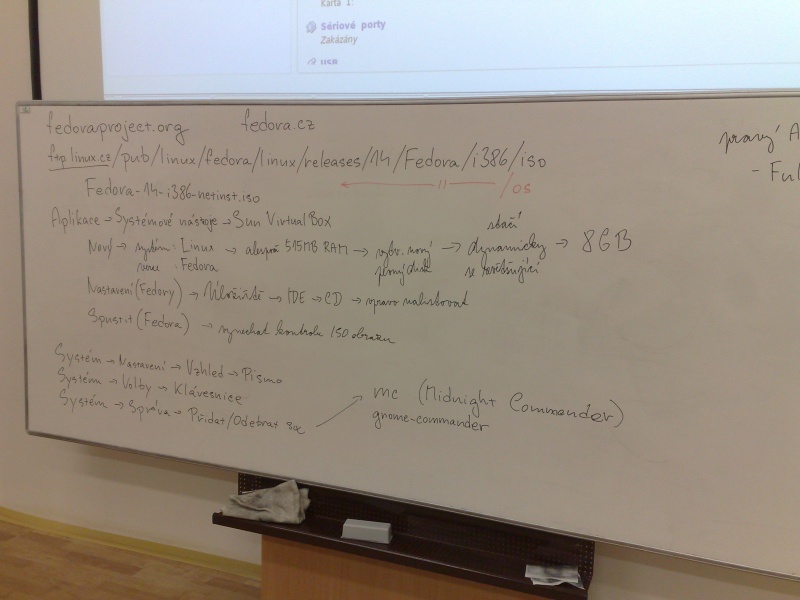 Karta 1:
Sériové porty
Zakázány
USB
fedoraproject.org fedora.cz
ftp.linux.cz/pub/linux/fedora/linux/releases/14/Fedora/i386/iso
11 /os
Fedora-14-i386-netinst.iso
Aplikace → Systémové nástroje → Sun VirtualBox
stačí
Nový → systém: Linux → alespoň 515MB RAM → vytv. nový → dynamicky → 8GB
verze : Fedora pevný disk se zvětšující
Nastavení (Fedory) → Úložiště → IDE → CD → vpravo nalistovat
Spustit (Fedora) → vynechat kontrolu ISO obrazu
Systém → Nastavení → Vzhled → Písmo
Systém → Volby → Klávesnice
Systém → Správa → Přidat/Odebrat sw
mc (Midnight Commander)
gnome-commander
pravý A
- Ful